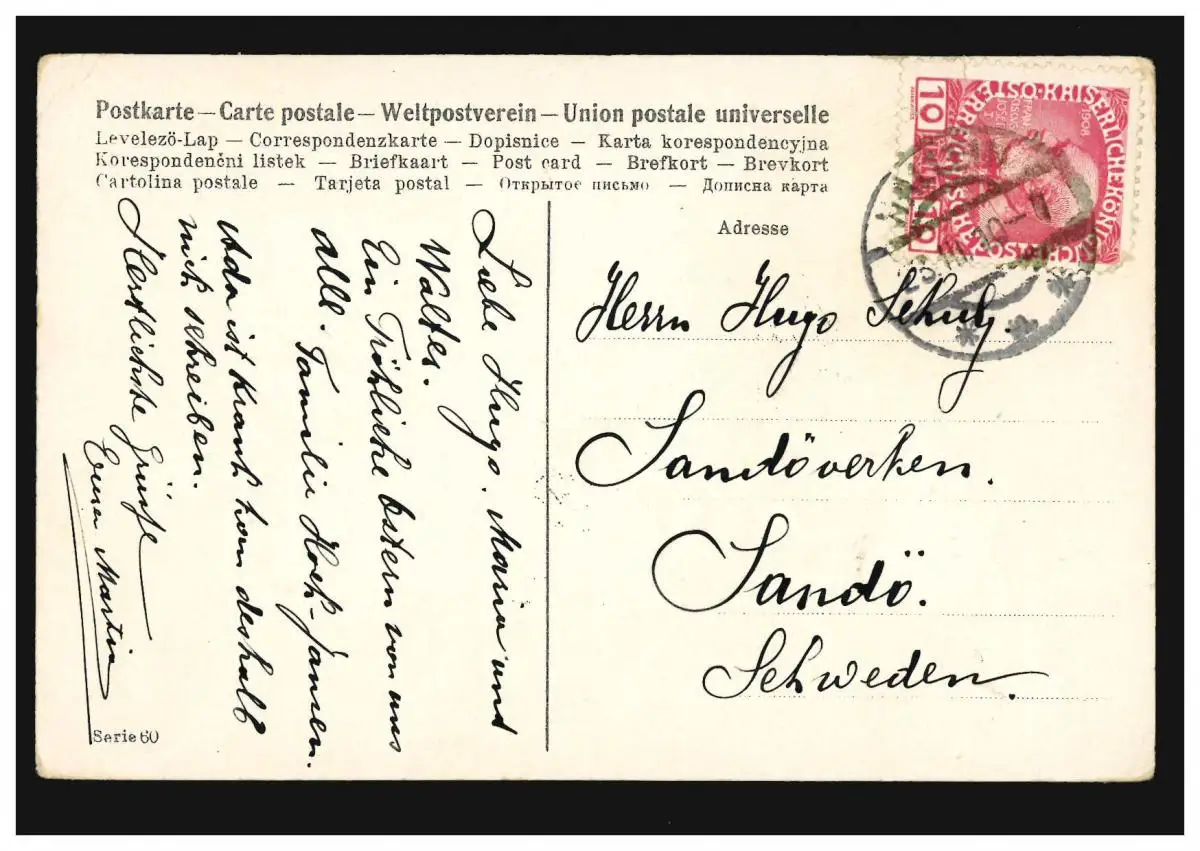 Postkarte – Carte postale – Weltpostverein – Union postale universelle
Levelező-Lap – Correspondenzkarte – Dopisnice – Karta korespondencyjna
Korespondenčni listek – Briefkaart – Post card – Brefkort – Brevkort
Cartolina postale – Tarjeta postal – Открытое письмо – Дописна карта
Adresse
Herrn Hugo Schulz.
Sandöverken.
Sandö.
Schweden.
Liebe Hugo. Maria und
Walter.
Ein Fröhliche Ostern von uns
alle. Familie Hoch-Jansen.
Ada ist krank kan deshalb
nich schreiben.
Herzlichste Grüsse
Euer Martin
Serie 60
KAISERLICHE KÖNIGLICHE ÖSTERREICHISCHE POST
1908
FRANZ JOSEF I
10 HELLER 10